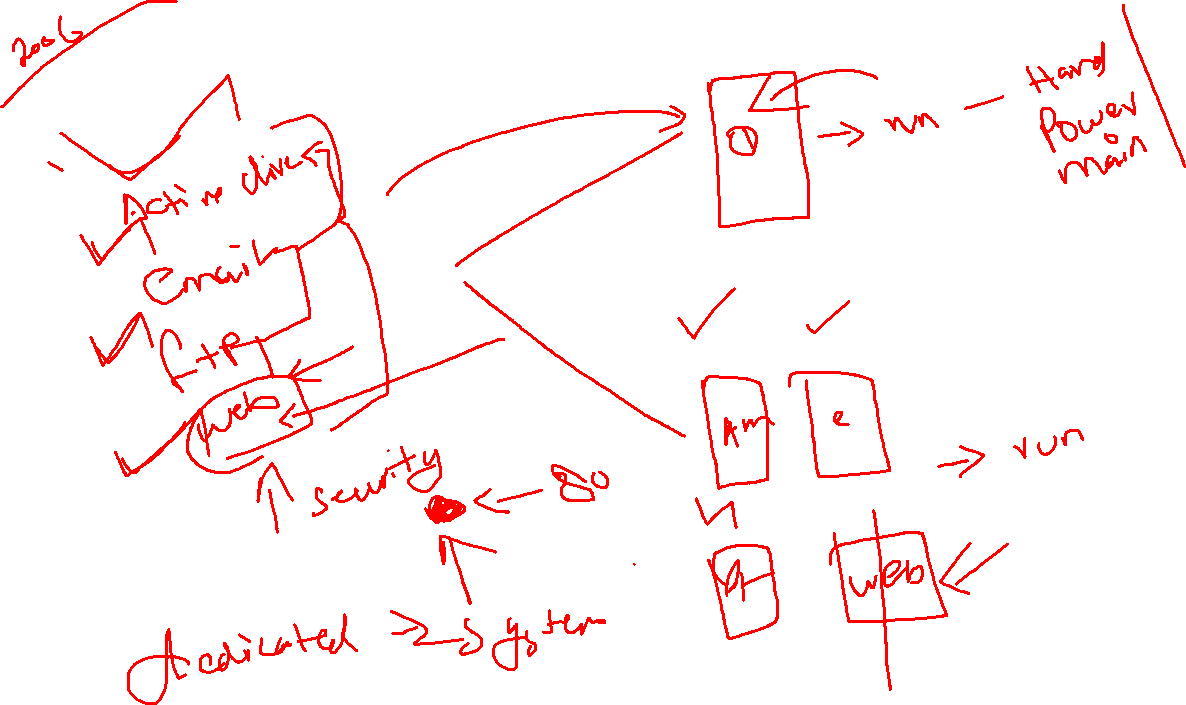 2006
Active dive
Email
ftp
web
security
80
Dedicated → system
→ run — Hard
Power
main
Am
e
→ run
web